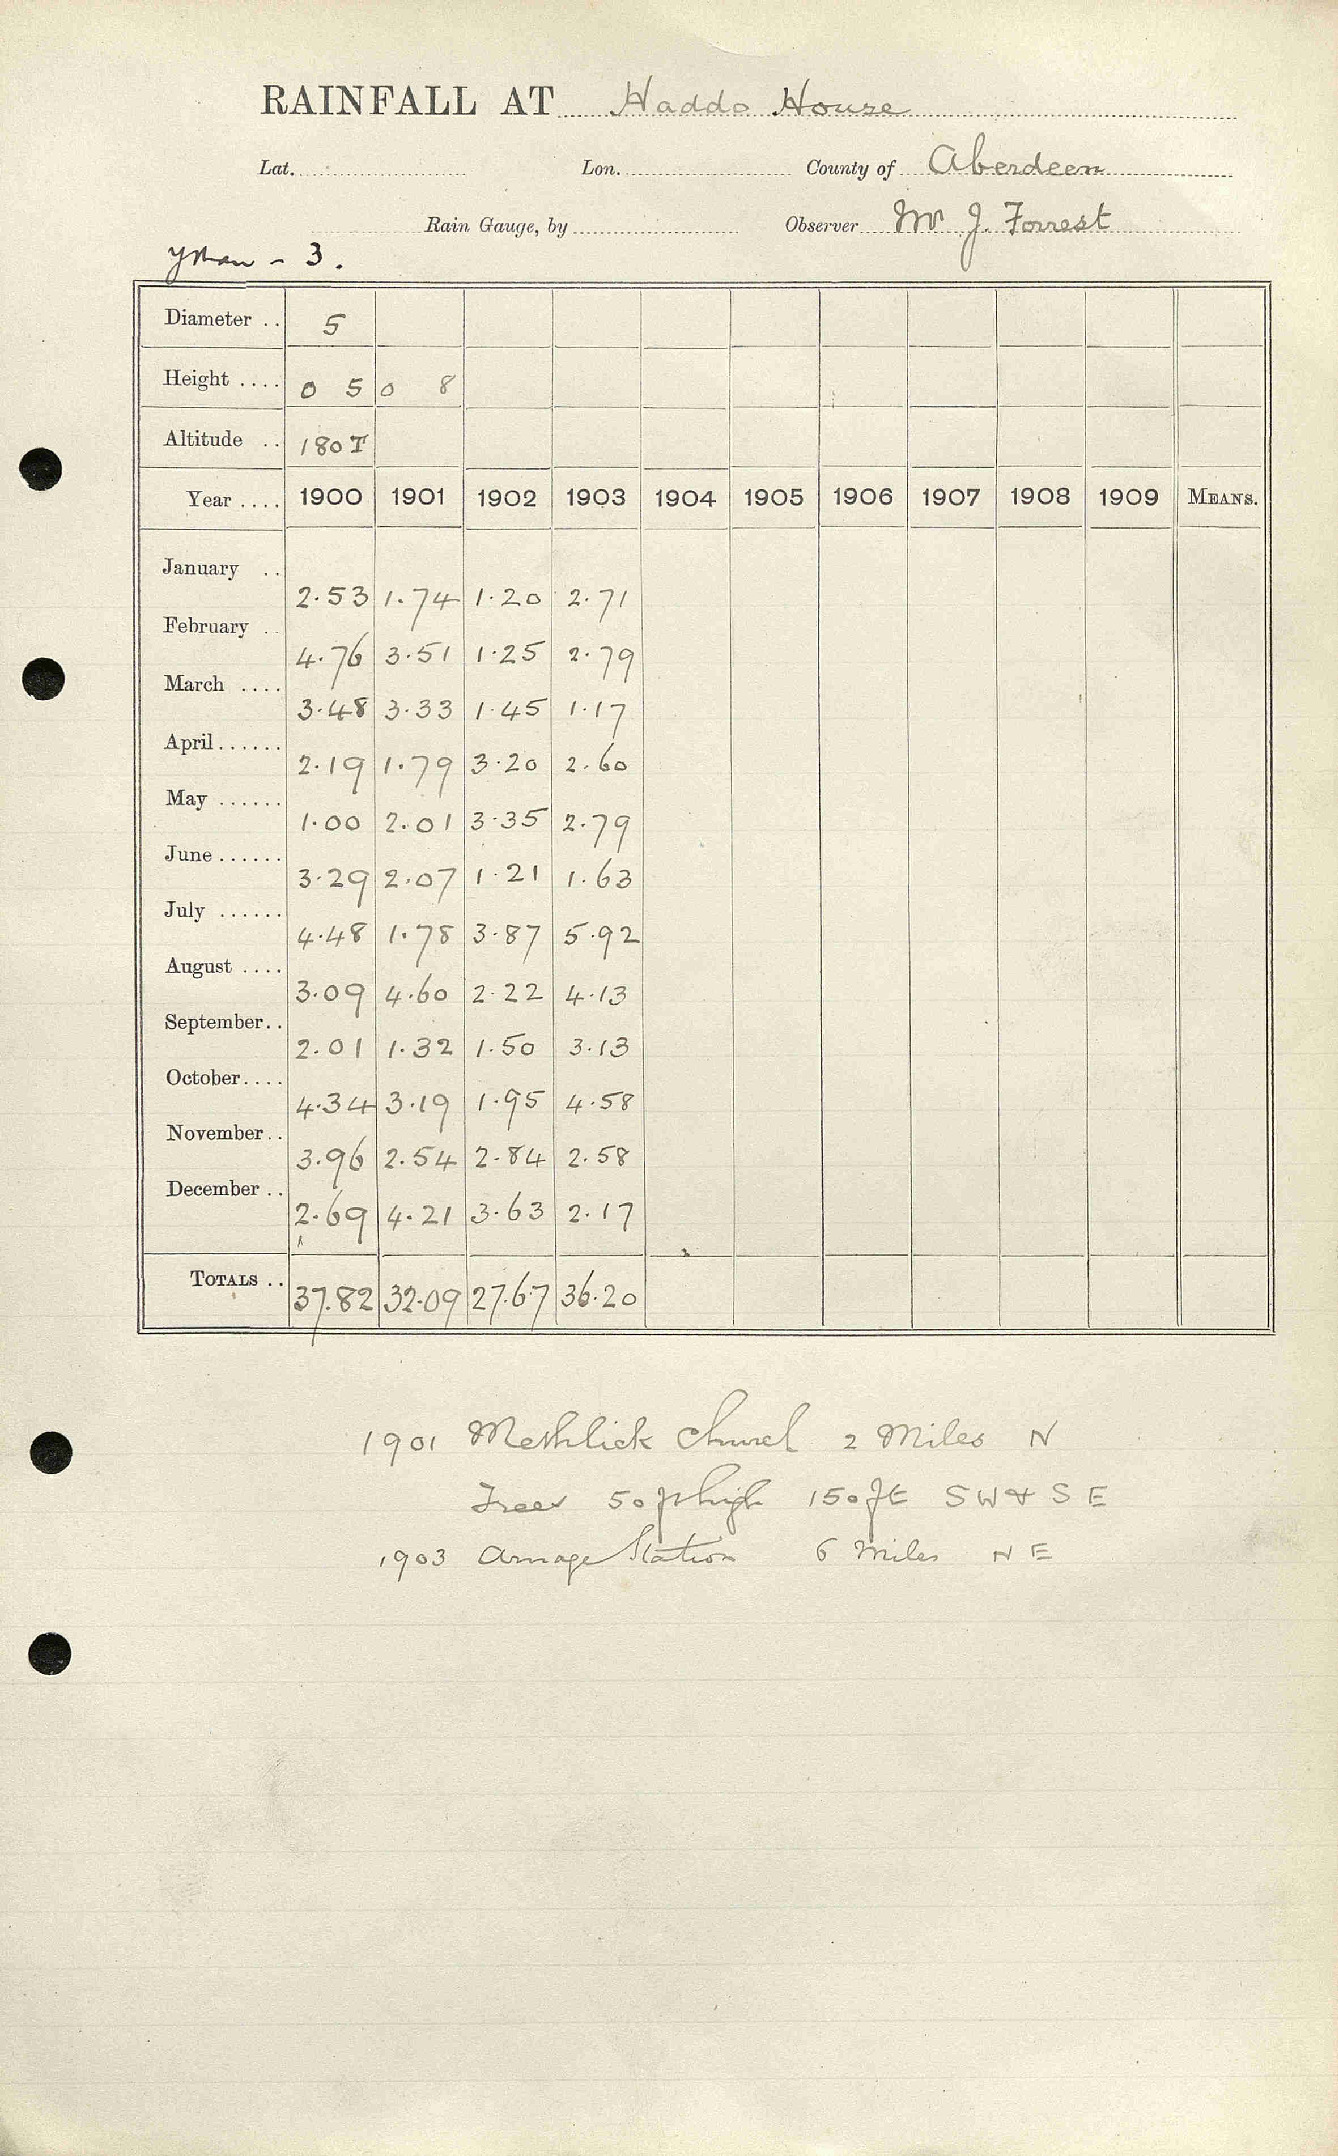 RAINFALL AT Haddo House
Lat. Lon. County of Aberdeen
Rain Gauge, by Observer Mr J. Forrest
Ythan - 3.
Diameter .. 5
Height .... 0 5 0 8
Altitude .. 180 T
Year .... 1900 1901 1902 1903 1904 1905 1906 1907 1908 1909 MEANS.
January .. 2.53 1.74 1.20 2.71
February .. 4.76 3.51 1.25 2.79
March .... 3.48 3.33 1.45 1.17
April...... 2.19 1.79 3.20 2.60
May ...... 1.00 2.01 3.35 2.79
June...... 3.29 2.07 1.21 1.63
July ...... 4.48 1.78 3.87 5.92
August .... 3.09 4.60 2.22 4.13
September.. 2.01 1.32 1.50 3.13
October.... 4.34 3.19 1.95 4.58
November.. 3.96 2.54 2.84 2.58
December .. 2.69 4.21 3.63 2.17
TOTALS .. 37.82 32.09 27.67 36.20
1901 Methlick Church 2 Miles N
Trees 50 ft high 150 ft SW & SE
1903 Arnage Station 6 Miles NE